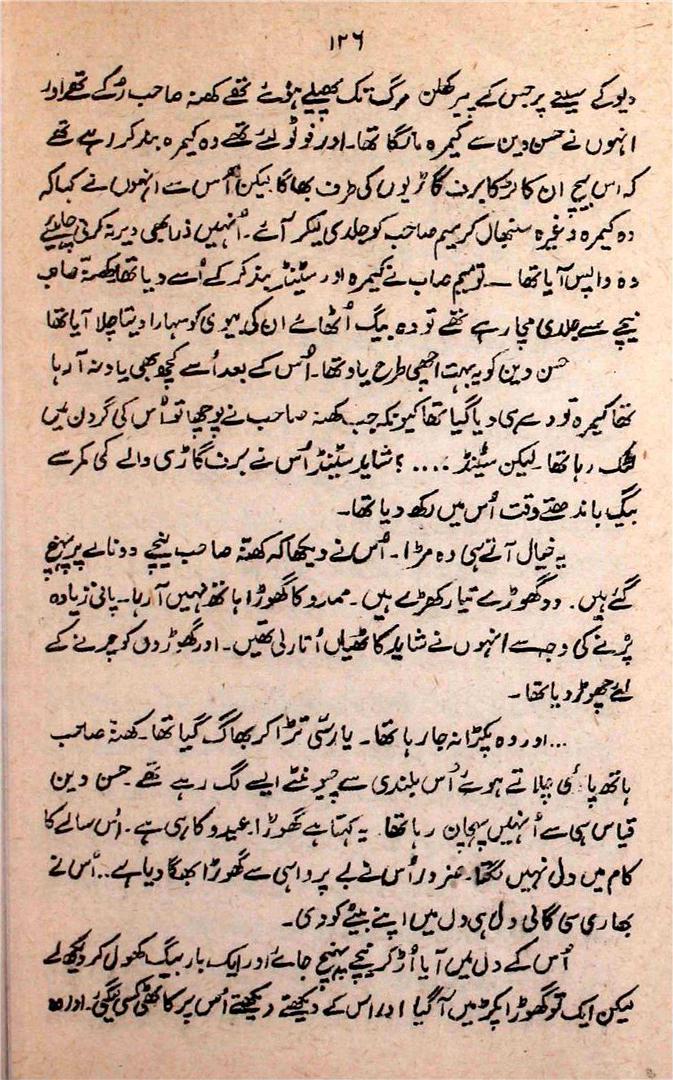 ۱۲۶
دیو کے سینے پر جس کے پیر کھلن مرگ تک پھیلے ہوئے تھے کھنہ صاحب رُکے تھے اور
انہوں نے حسن دین سے کیمرہ مانگا تھا۔ اور فوٹو لئے تھے وہ کیمرہ بند کر رہے تھے
کہ اس بیچ ان کا لڑکا برف گاڑیوں کی طرف بھاگا لیکن اُس سے انہوں نے کہا کہ
وہ کیمرہ وغیرہ سنبھال کر میم صاحب کو جلدی لیکر آئے۔ اُنہیں ذرا بھی دیر نہ کرنی چاہیئے
وہ واپس آیا تھا — تو میم صاب نے کیمرہ اور سٹینڈ بند کر کے اُسے دیا تھا کھنہ صاحب
نیچے سے جلدی مچا رہے تھے تو وہ بیگ اُٹھائے ان کی بیوی کو سہارا دیتا چلا آیا تھا
حسن دین کو یہ بہت اچھی طرح یاد تھا۔ اُس کے بعد اُسے کچھ بھی یاد نہ آ رہا
تھا کیمرہ تو دے ہی دیا گیا تھا کیونکہ جب کھنہ صاحب نے پوچھا تو اُس کی گردن میں
لٹک رہا تھا۔ لیکن سٹینڈ ....؟ شاید سٹینڈ اُس نے برف گاڑی والے کی کمر سے
بیگ باندھتے وقت اُس میں رکھ دیا تھا۔
یہ خیال آتے ہی وہ مڑا۔ اُس نے دیکھا کہ کھنہ صاحب نیچے دو نالے پر پہنچ
گئے ہیں۔ دو گھوڑے تیار کھڑے ہیں۔ ممدو کا گھوڑا ہاتھ نہیں آ رہا۔ پانی زیادہ
پڑنے کی وجہ سے انہوں نے شاید کاٹھیاں اُتار لی تھیں۔ اور گھوڑوں کو چرنے کے
لئے چھوڑ دیا تھا۔
... اور وہ پکڑا نہ جا رہا تھا۔ یا رسّی تڑا کر بھاگ گیا تھا۔ کھنہ صاحب
ہاتھ پاؤں چلاتے ہوئے اُس بلندی سے چیونٹے ایسے لگ رہے تھے۔ حسن دین
قیاس ہی سے اُنہیں پہچان رہا تھا۔ یہ کہتا ہے گھوڑا عیدو کا ہی ہے۔ اُس سالے کا
کام میں دل نہیں لگتا۔ ضرور اُس نے بے پرواہی سے گھوڑا بھگا دیا ہے.. اُس نے
بھاری سی گالی دل ہی دل میں اپنے بیٹے کو دی۔
اُس کے دل میں آیا اُڑ کر نیچے پہنچ جائے اور ایک بار بیگ کھول کر دیکھ لے
لیکن ایک تو گھوڑا پکڑ میں آ گیا اور اس کے دیکھتے دیکھتے اُس پر کاٹھی کسی گئی۔ اور وہ